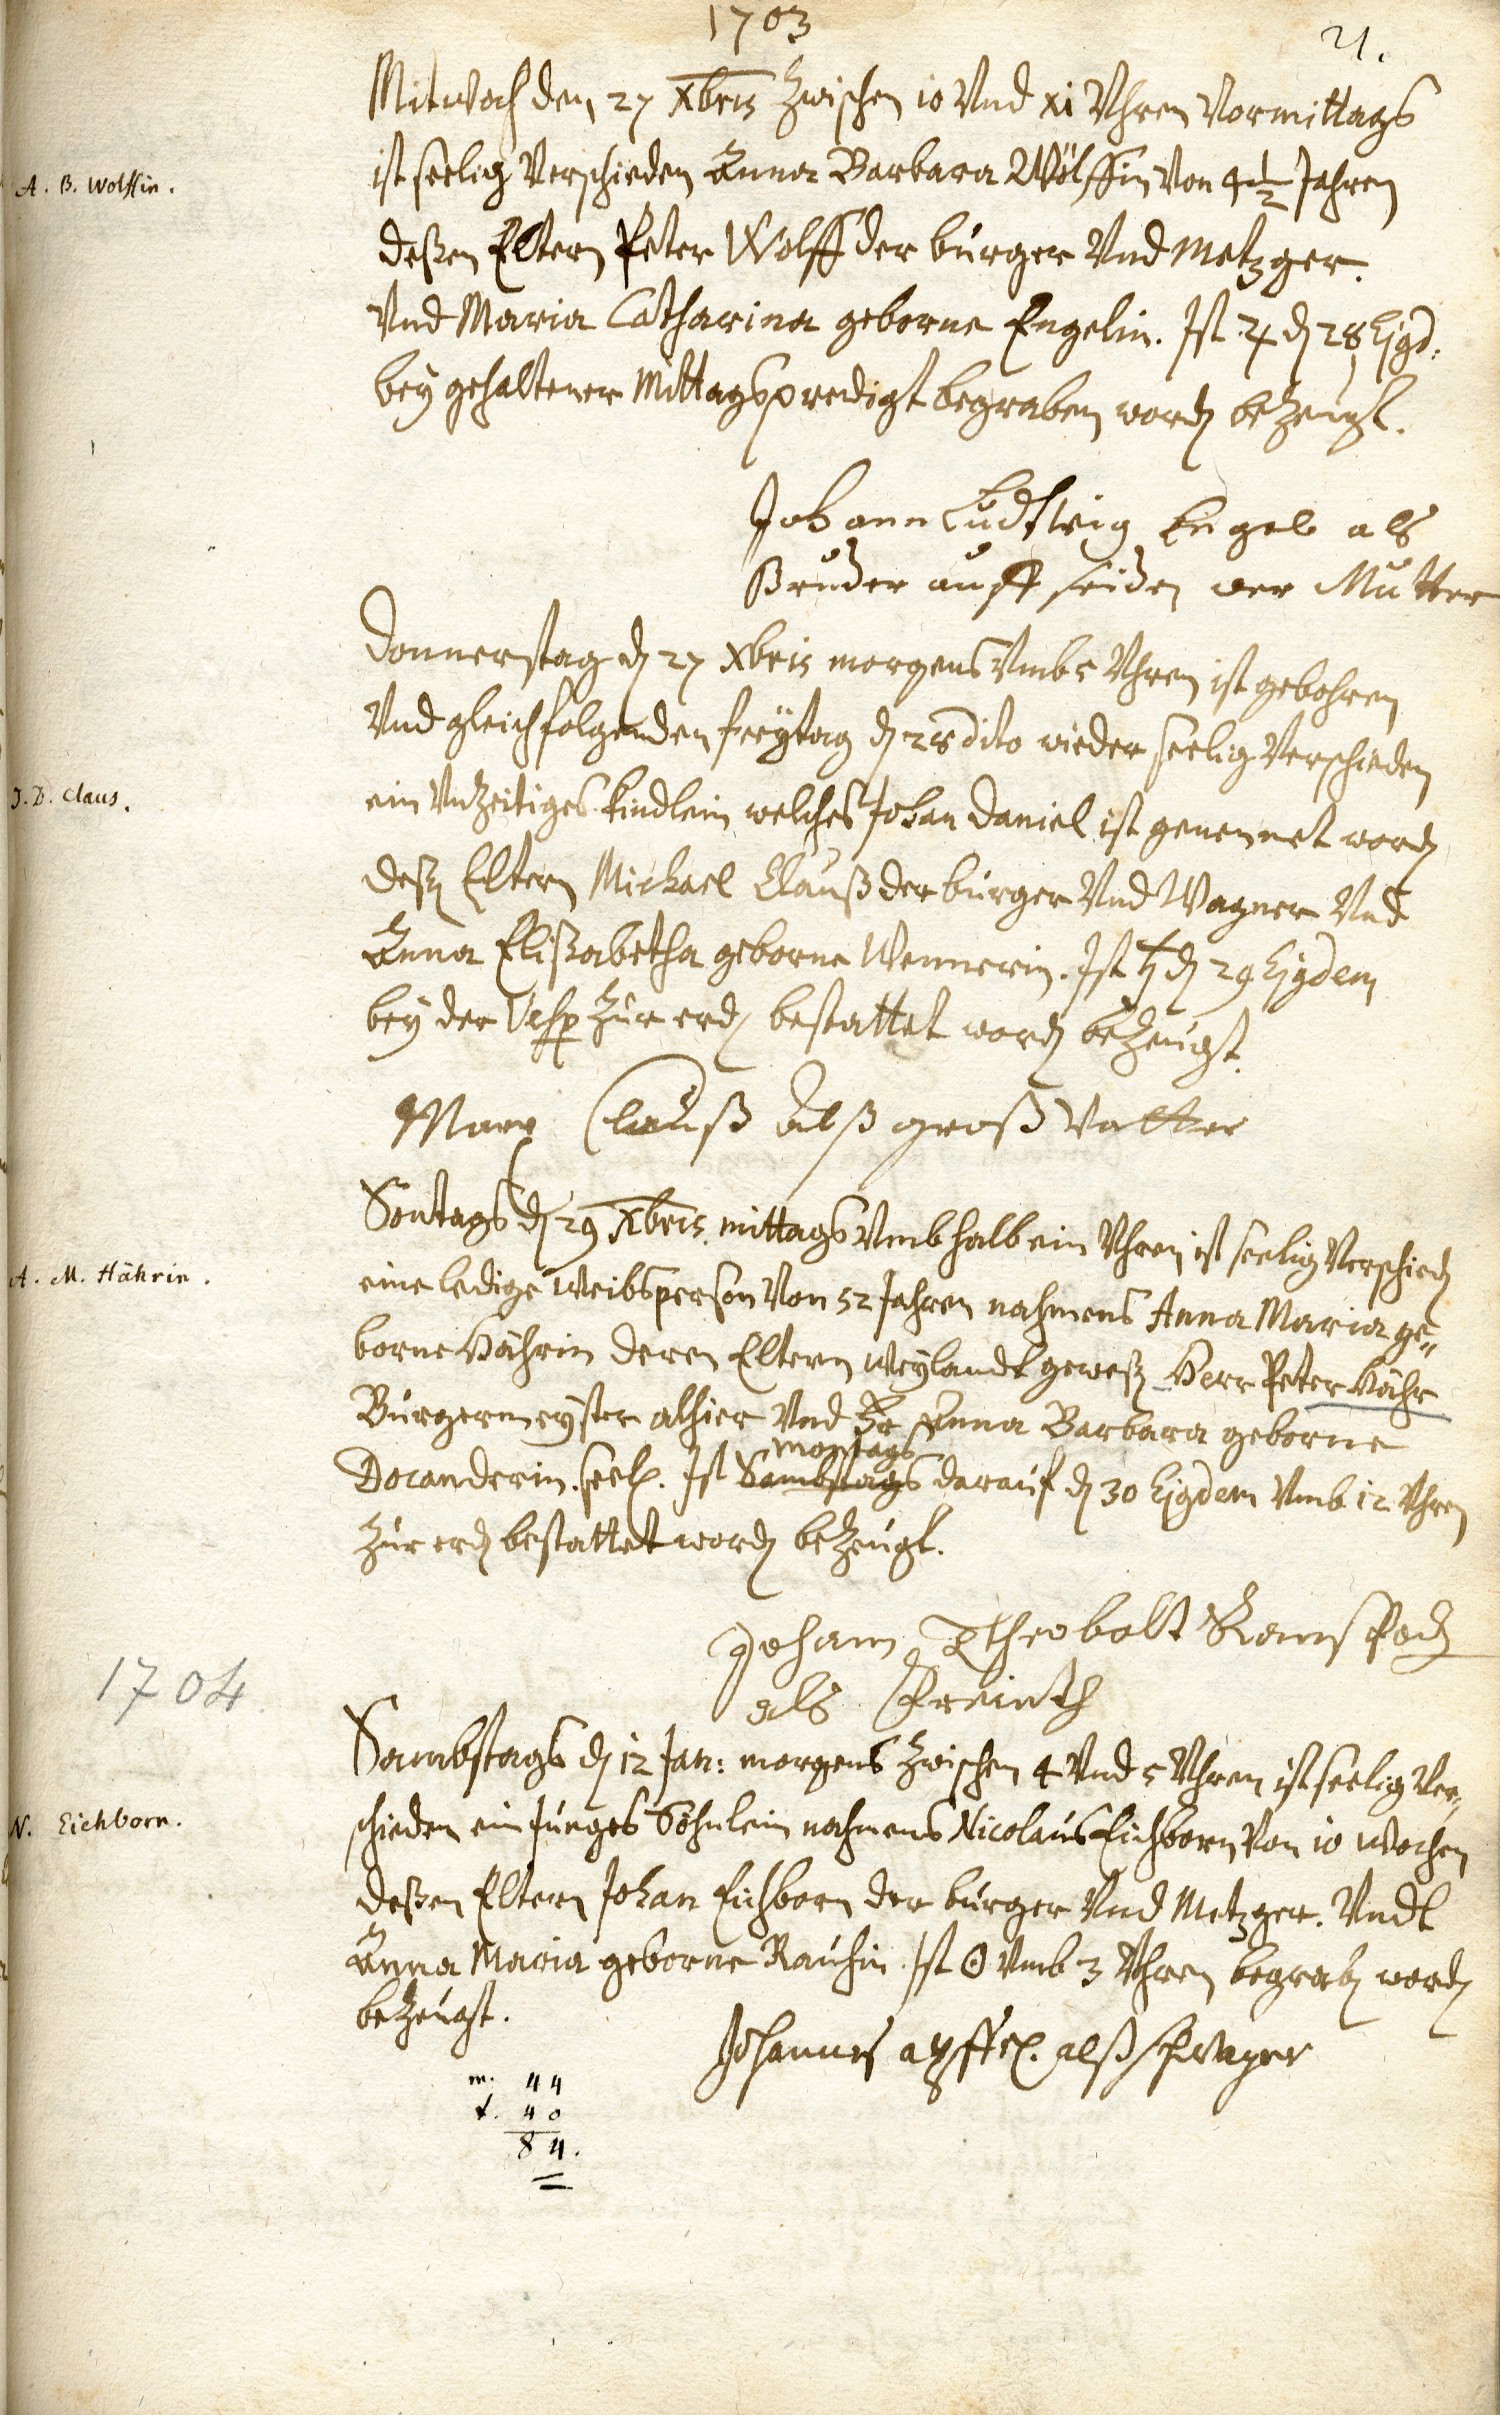 1703
21.
Mitwoch den 27 Xbris zwischen 10 Vnd XI Vhren Vormittags
A. B. Wolffin.
ist seelig Verschieden Anna Barbara Wölffin Von 4 1/2 Jahren
deßen Eltern Peter Wolff der burger Vnd Metzger.
Vnd Maria Catharina geborne Engelin. Ist ♃ d 28 Ejgd:
bey gehaltener Mittagspredigt begraben word bezeugt.
Johann Ludtwig Engel als
Bruder auff seiden der Mutter
Donnerstag d 27 Xbris morgens Vmb 5 Vhren ist gebohren
Vnd gleich folgenden freÿtag d 28 dito wieder seelig Verschieden
J. D. Claus.
ein Vnzeitiges Kindlein welches Johan Daniel ist genennet word
deß Eltern Michael Clauß der burger Vnd Wagner Vnd
Anna Elisabetha geborne Wennerin. Ist ♄ d 29 Ejgdem
bey der Vesp zur erd bestattet word bezeugt.
Marx Clauß alß groß Vatter
Sontags d 29 Xbris mittags Vmb halb ein Vhren ist seelig Verschied
A. M. Hährin.
eine ledige Weibsperson Von 52 Jahren nahmens Anna Maria ge=
borne Hährin deren Eltern Weylandt geweß Herr Peter Hähr
Burgermeyster alhier Vnd Fr Anna Barbara geborne
montags
Doranderin seel. Ist Sambstags darauf d 30 Ejgdem Vmb 12 Vhren
zur erd bestattet word bezeugt.
Johann Theobolt
als freindt
1704
Sambstags d 12 Jan: morgens zwischen 4 Vnd 5 Vhren ist seelig Ver=
N. Eichborn.
schieden ein Junges Söhnlein nahmens Nicolaus Eichborn Von 10 Wochen
deßen Eltern Johan Eichborn der burger Vnd Metzger. Vndt
Anna Maria geborne Rauhin. Ist ☉ Vmb 3 Vhren begrab word
bezeugt.
Johannes apffel. alß schwager
m. 44
f. 40
84.